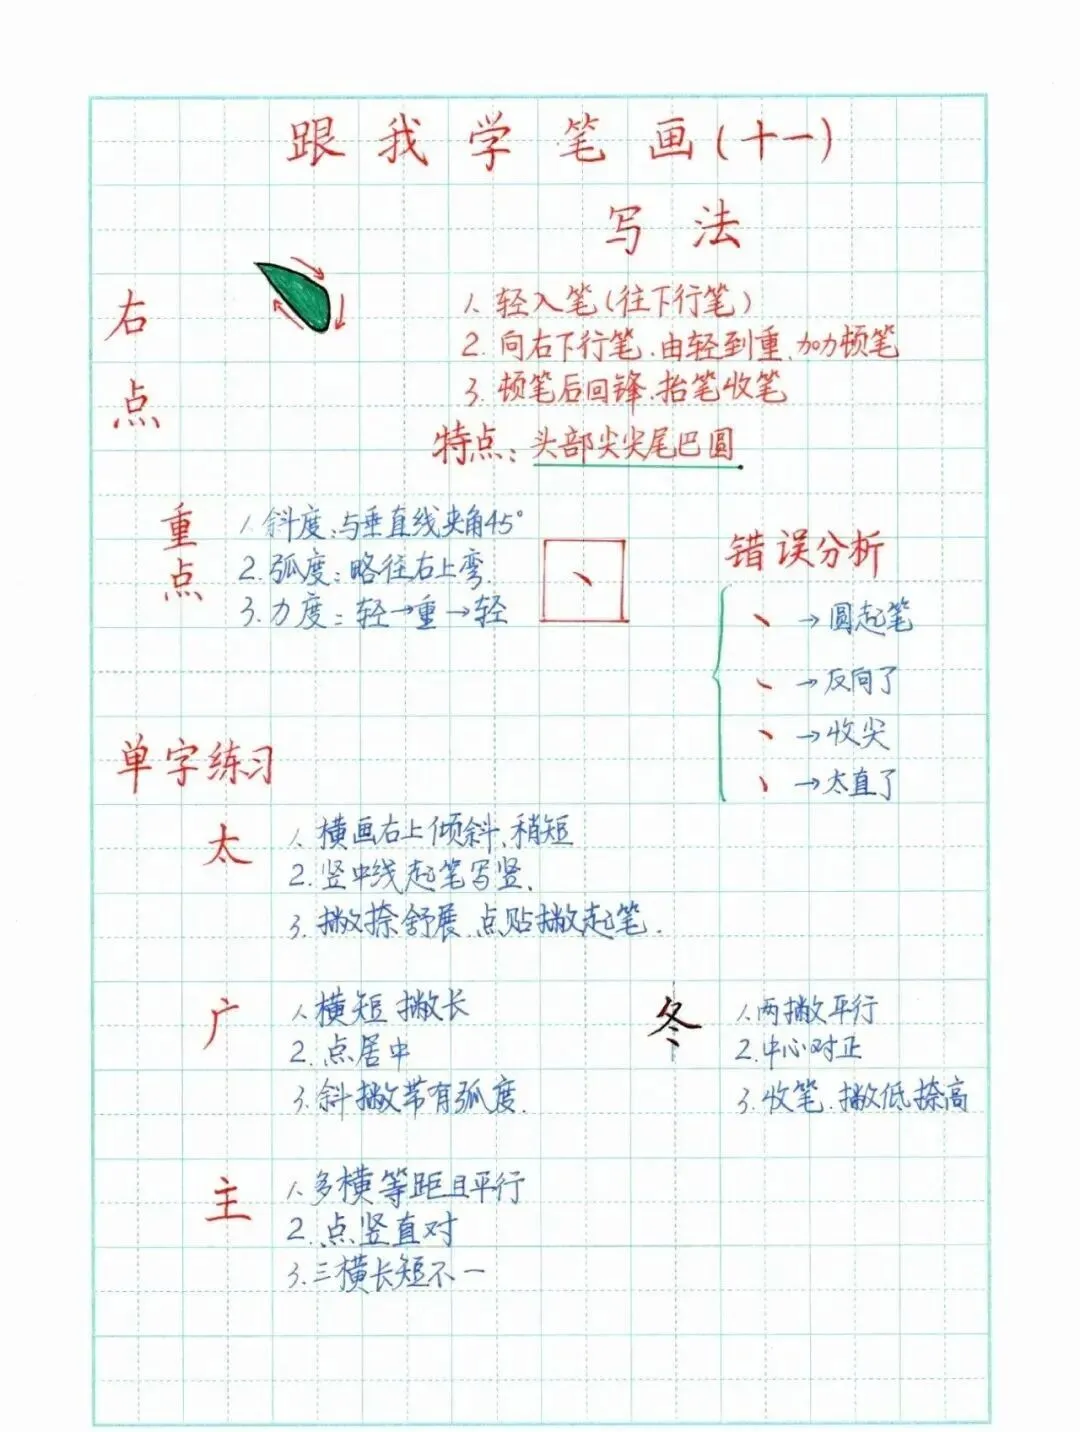 跟我学笔画(十一)
写法
右点
1.轻入笔(往下行笔)
2.向右下行笔.由轻到重、加力顿笔
3.顿笔后回锋.抬笔收笔
特点:头部尖尖尾巴圆
重点
1.斜度:与垂直线夹角45°
2.弧度:略往右上弯.
3.力度:轻→重→轻
错误分析
→圆起笔
→反向了
→收尖
→太直了
单字练习
太
1.横画右上倾斜、稍短
2.竖中线起笔写竖、
3.撇捺舒展.点贴撇起笔.
广
1.横短撇长
2.点居中
3.斜撇带有弧度.
冬
1.两撇平行
2.中心对正
3.收笔.撇低捺高
主
1.多横等距且平行
2.点竖直对
3.三横长短不一